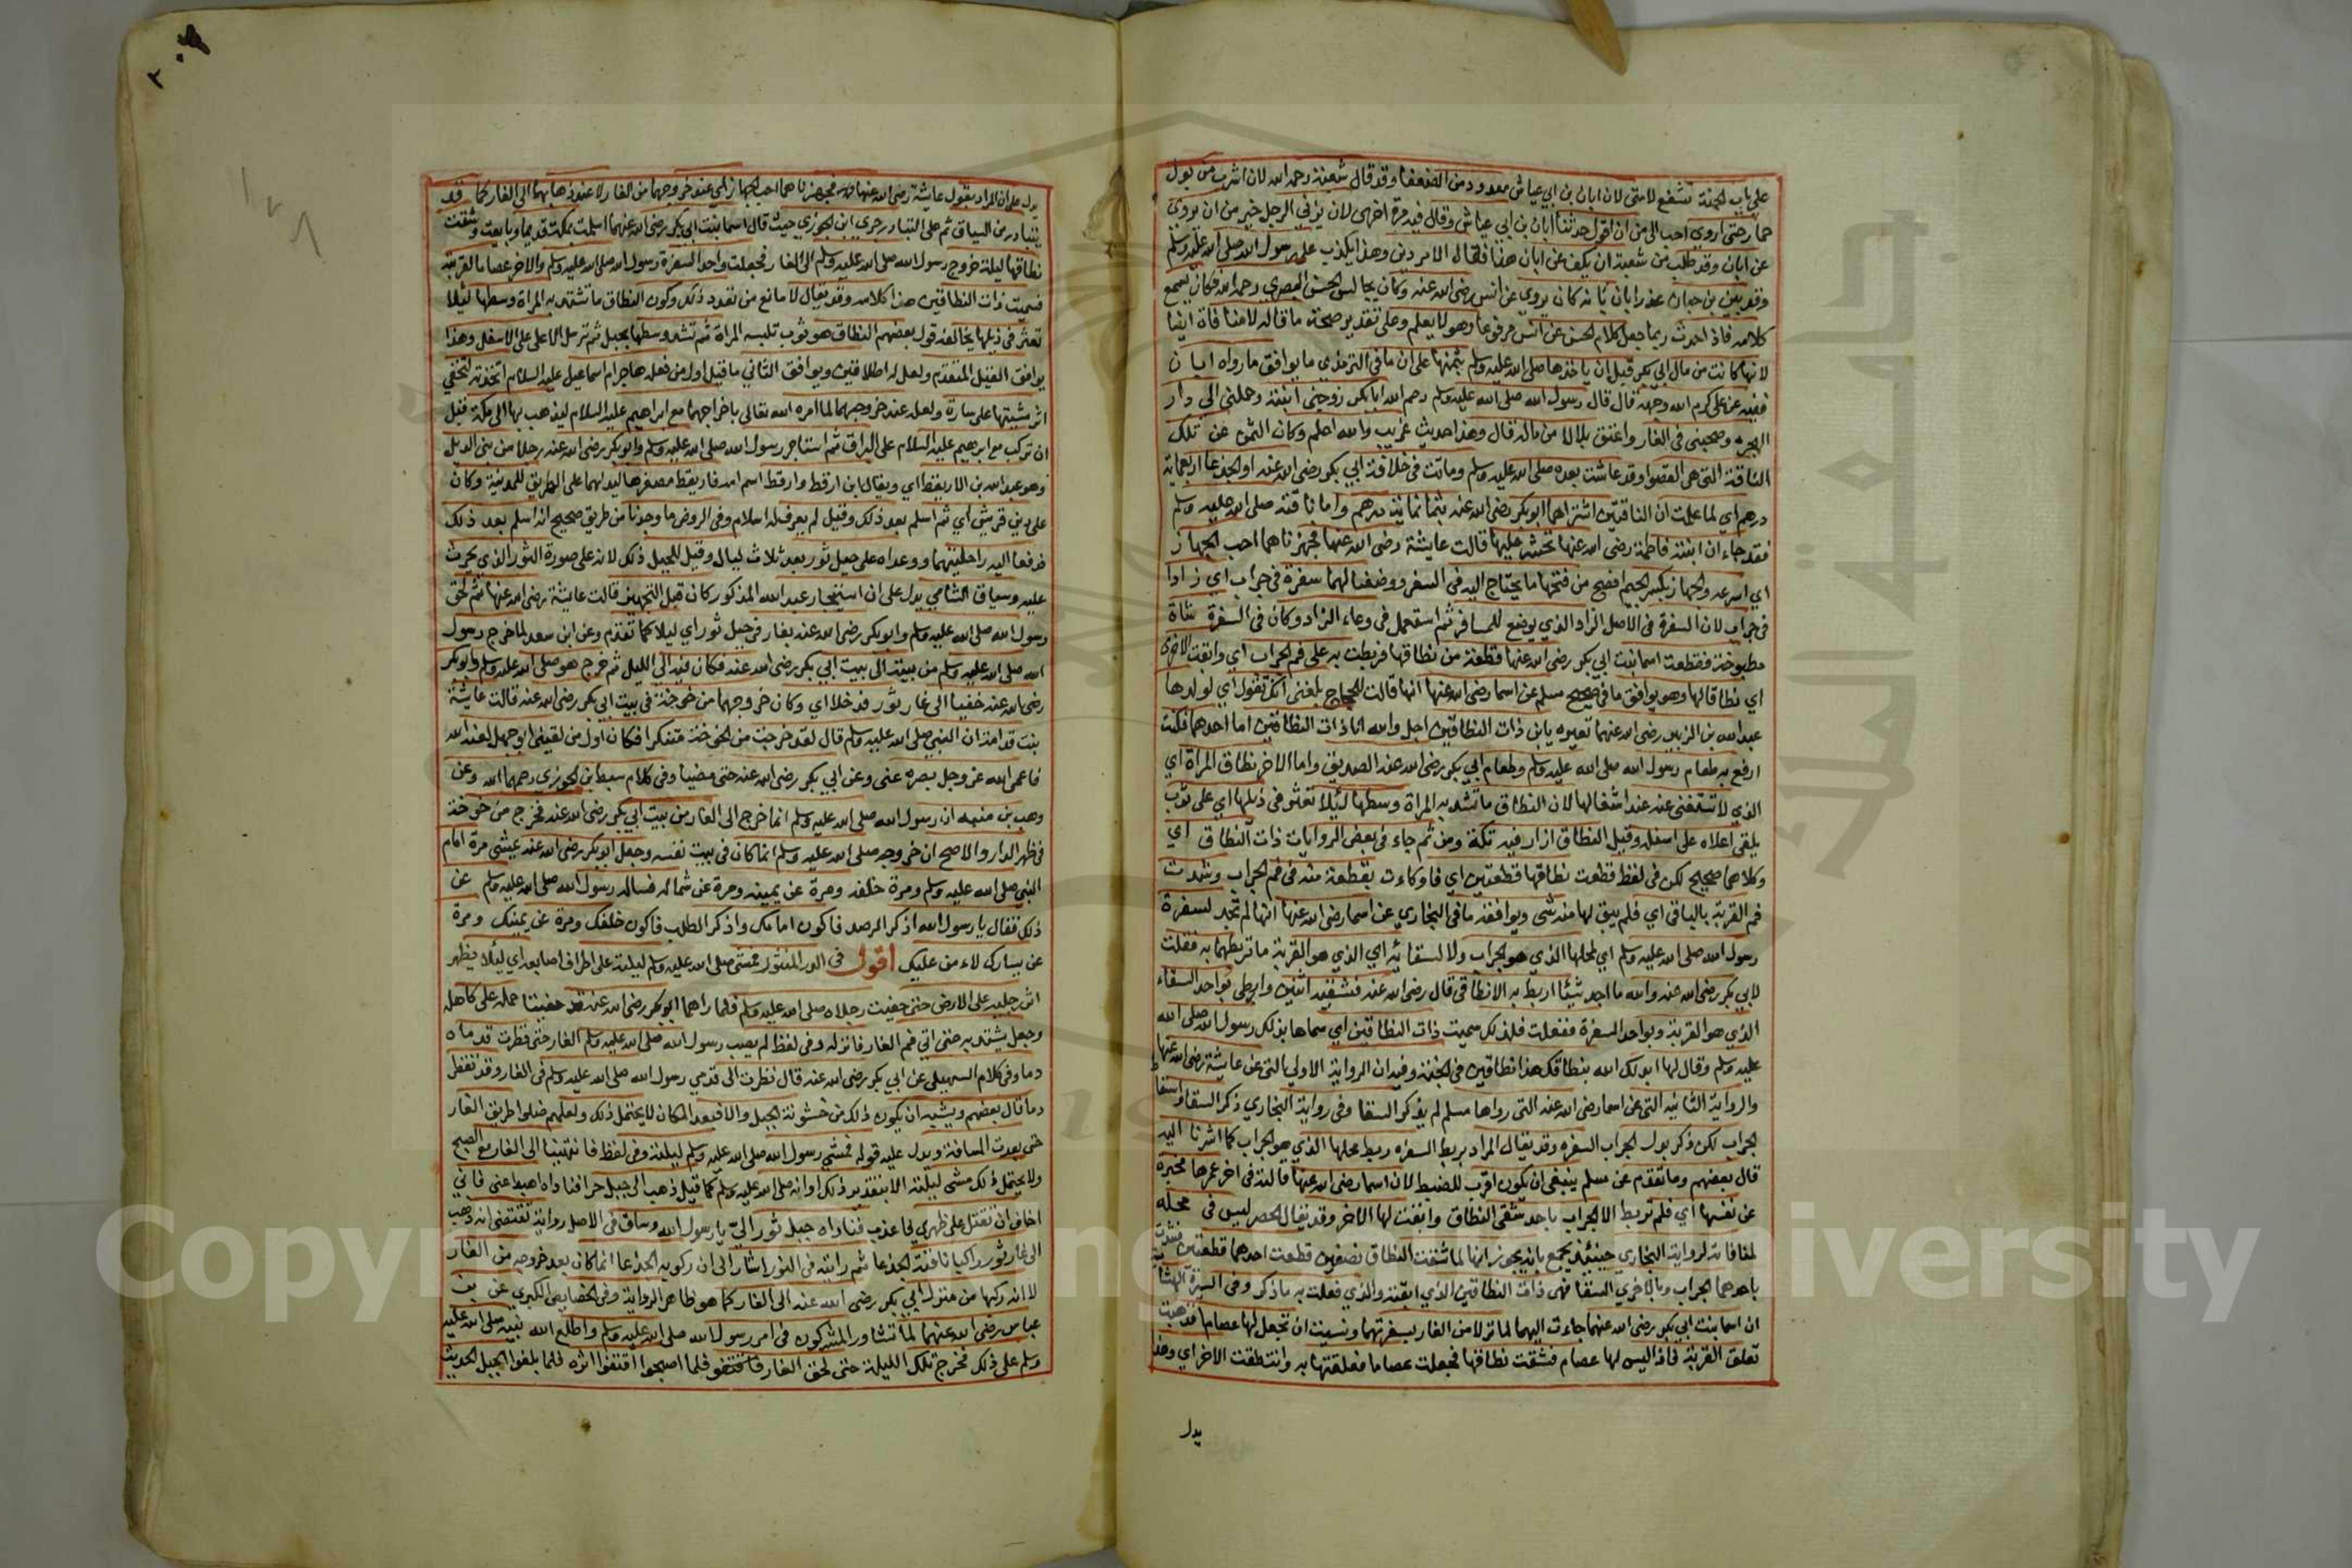 على باب الجنة تشفع لامتى لان ابان بن ابي عياش معدود من الضعفا وقد قال شعبة رحمه الله لان اشرب من بول
حمار حتى اروى احب الى من ان اقول حدثنا ابان بن ابي عياش وقال فيه مرة اخرى لان يزني الرجل خير من ان يروي
عن ابان وقد طلب من شعبة ان يكف عن ابان هذا فقال الامر دين وهذا يكذب على رسول الله صلى الله عليه وسلم
وقد بين بن حبان عذر ابان بانه كان يروي عن انس رضى الله عنه وكان يجالس الحسن البصري رحمه الله فكان يسمع
كلامه فاذا حدث ربما جعل كلام الحسن عن انس مرفوعا وهو لا يعلم وعلى تقدير صحة ما قاله لا منافاة ايضا
لانها كانت من مال ابي بكر قبل ان ياخذها صلى الله عليه وسلم بثمنها على ان ما في الترمذي ما يوافق ما رواه ابان
ففيه عن على كرم الله وجهه قال قال رسول الله صلى الله عليه وسلم رحم الله ابا بكر زوجنى ابنته وحملنى الى دار
الهجرة وصحبنى فى الغار واعتق بلالا من ماله قال وهذا حديث غريب والله اعلم وكان الثمن عن تلك
الناقة التى هى القصوا وقد عاشت بعده صلى الله عليه وسلم وماتت فى خلافة ابي بكر رضى الله عنه او الجذعا اربعماية
درهم اي لما علمت ان الناقتين اشتراهما ابو بكر رضى الله عنه بثمانماية درهم واما ناقته صلى الله عليه وسلم
فقد جاء ان ابنته فاطمة رضى الله عنها تحشر عليها قالت عايشة رضى الله عنها فجهزناهما احب الجهاز
اي اسرعه والجهاز بكسر الجيم افصح من فتحها ما يحتاج اليه فى السفر ووضعنا لهما سفرة فى جراب اي زادا
فى جراب لان السفرة فى الاصل الزاد الذي يوضع للمسافر ثم استعمل فى وعاء الزاد وكان فى السفرة شاة
مطبوخة فقطعت اسما بنت ابي بكر رضى الله عنها قطعة من نطاقها فربطت به على فم الجراب اي وابقت الاخرى
اي نطاقا لها وهو يوافق ما فى صحيح مسلم عن اسما رضى الله عنها انها قالت للحجاج بلغنى انك تقول اي لولدها
عبد الله بن الزبير رضى الله عنهما تعيره يابن ذات النطاقين اجل والله انا ذات النطاقين اما احدهما فكنت
ارفع به طعام رسول الله صلى الله عليه وسلم وطعام ابي بكر رضى الله عنه الصديق واما الاخر نطاق المراة اي
الذي لا تستغنى عنه عند اشغالها لان النطاق ما تشد به المراة وسطها ليلا تعثر فى ذيلها اي على ثوب
يلقى اعلاه على اسفله وقيل النطاق ازار فيه تكة ومن ثم جاء فى بعض الروايات ذات النطاق اي
وكلاهما صحيح لكن فى لفظ قطعت نطاقها قطعتين اي فاوكات بقطعة منه فى فم الجراب وشدت
فم القربة بالباقى اي فلم يبق لها منه شى ويوافقه ما فى البخاري عن اسما رضى الله عنها انها لم تجد لسفرة
رسول الله صلى الله عليه وسلم اي لمحلها الذي هو الجراب ولا لسقائه اي الذي هو القربة ما تربطهما به فقلت
لابي بكر رضى الله عنه والله ما اجد شيئا اربط به الا نطاقى قال رضى الله عنه فشقيه اثنين واربطى بواحد السقاء
الذي هو القربة وبواحد السفرة ففعلت فلذلك سميت ذات النطاقين اي سماها بذلك رسول الله صلى الله
عليه وسلم وقال لها ابدلك الله بنطاقك هذا نطاقين فى الجنة وفيه ان الرواية الاولى التى عن عايشة رضى الله عنها
والرواية الثانية التى عن اسما رضى الله عنه التى رواها مسلم لم يذكر السقا وفى رواية البخاري ذكر السقا واسقا
الجراب لكن ذكر بدل الجراب السفرة وقد يقال المراد بربط السفرة ربط محلها الذي هو الجراب كما اشرنا اليه
قال بعضهم وما تقدم عن مسلم ينبغى ان يكون اقرب للضبط لان اسما رضى الله عنها قالته فى اخر عمرها مخبرة
عن نفسها اي فلم تربط الا الجراب باحد شقى النطاق وابقت لها الاخر وقد يقال الحصر ليس فى محله
لمنافاته لرواية البخاري حينئذ يجمع بانه يجوز انها لما شقت النطاق نصفين قطعت احدهما قطعتين فشدت
باحدهما الجراب وبالاخرى السقا فهى ذات النطاقين الذي ابقته والذي فعلت به ما ذكر وفى السيرة الهشامية
ان اسما بنت ابي بكر رضى الله عنهما جاءت اليهما لما نزلا من الغار بسفرتهما ونسيت ان تجعل لها عصاما فذهبت
تعلق القربة فاذا ليس لها عصام فشقت نطاقها فجعلت عصاما فعلقتها به وانتطقت الاخر اي وهذا
يدل
يدل على ان المراد بقول عايشة رضى الله عنها فجهزناهما احب الجهاز اي عند خروجهما من الغار لا عند ذهابهما الى الغار كما قد
يتبادر من السياق ثم على التبادر جرى ابن الجوزي حيث قال اسما بنت ابي بكر رضى الله عنهما اسلمت بمكة قديما وبايعت وشقت
نطاقها ليلة خروج رسول الله صلى الله عليه وسلم الى الغار فجعلت واحدا لسفرة رسول الله صلى الله عليه وسلم والاخر عصاما لقربته
فسميت ذات النطاقين هذا كلامه وقد يقال لا مانع من تعدد ذلك وكون النطاق ما تشتد به المراة وسطها ليلا
تعثر فى ذيلها يخالفه قول بعضهم النطاق هو ثوب تلبسه المراة ثم تشد وسطها بحبل ثم ترسل الاعلى على الاسفل وهذا
يوافق القيل المتقدم ولعل له اطلاقين ويوافق الثانى ما قيل اول من فعله هاجر ام اسماعيل عليه السلام اتخذته لتخفي
اثر مشيتها على سارة ولعله عند خروجهما لما امره الله تعالى باخراجهما مع ابراهيم عليه السلام ليذهب بها الى مكة قبل
ان تركب مع ابرهيم عليه السلام على البراق ثم استاجر رسول الله صلى الله عليه وسلم وابو بكر رضى الله عنه رجلا من بنى الديل
وهو عبد الله بن الاريقط اي ويقال ابن ارقط وارقط اسم امه فاريقط مصغرها ليدلهما على الطريق للمدينة وكان
على دين قريش اي ثم اسلم بعد ذلك وقيل لم يعرف له اسلام وفى الروض ما وجدنا من طريق صحيح انه اسلم بعد ذلك
فدفعا اليه راحلتيهما وواعداه على جبل ثور بعد ثلاث ليال وقيل للجبل ذلك لانه على صورة الثور الذي يحرث
عليه وسياق الشامي يدل على ان استيجار عبد الله المذكور كان قبل التجهيز قالت عايشة رضى الله عنها ثم لحق
رسول الله صلى الله عليه وسلم وابو بكر رضى الله عنه بغار فى جبل ثور اي ليلا كما تقدم وعن ابن سعد لما خرج رسول
الله صلى الله عليه وسلم من بيته الى بيت ابي بكر رضى الله عنه فكان فيه الى الليل ثم خرج هو صلى الله عليه وسلم وابو بكر
رضى الله عنه خفيا الى غار بثور فدخلا اي وكان خروجهما من خوخة فى بيت ابي بكر رضى الله عنه قالت عايشة
بنت قدامة ان النبي صلى الله عليه وسلم قال لقد خرجت من الخوخة متنكرا فكان اول من لقينى ابو جهل لعنه الله
فاعمى الله عز وجل بصره عنى وعن ابي بكر رضى الله عنه حتى مضينا وفى كلام سبط ابن الجوزي رحمهما الله وعن
وهب بن منبه ان رسول الله صلى الله عليه وسلم انما خرج الى الغار من بيت ابي بكر رضى الله عنه فخرج من خوخة
فى ظهر الدار والاصح ان خروجه صلى الله عليه وسلم انما كان فى بيت نفسه وجعل ابو بكر رضى الله عنه يمشى مرة امام
النبي صلى الله عليه وسلم ومرة خلفه ومرة عن يمينه ومرة عن شماله فساله رسول الله صلى الله عليه وسلم عن
ذلك فقال يا رسول الله اذكر الرصد فاكون امامك واذكر الطلب فاكون خلفك ومرة عن يمينك ومرة
عن يسارك لا امن عليك اقول فى الدر المنثور فمشى صلى الله عليه وسلم ليلته على اطراف اصابعه اي ليلا يظهر
اثر رجليه على الارض حتى حفيت رجلاه صلى الله عليه وسلم فلما راهما ابو بكر رضى الله عنه قد حفيتا حمله على كاهله
وجعل يشتد به حتى اتى فم الغار فانزله وفى لفظ لم يصب رسول الله صلى الله عليه وسلم الغار حتى قطرت قدماه
دما وفى كلام السهيلى عن ابي بكر رضى الله عنه قال نظرت الى قدمي رسول الله صلى الله عليه وسلم فى الغار وقد تقطر
دما قال بعضهم ويشبه ان يكون ذلك من خشونة الجبل والا فبعد المكان لا يحتمل ذلك ولعلهم ضلوا طريق الغار
حتى بعدت المسافة ويدل عليه قوله فمشي رسول الله صلى الله عليه وسلم ليلته وفى لفظ فانتهينا الى الغار مع الصبح
ولا يحتمل ذلك مشى ليلته الا بتقدير ذلك او انه صلى الله عليه وسلم كما قيل ذهب الى جبل حرا فناداه اهبط عنى فانى
اخاف ان تقتل على ظهري فاعذب فناداه جبل ثور الىّ يا رسول الله وساق فى الاصل رواية تقتضى انه ذهب
الى غار ثور راكبا ناقته الجذعا ثم رايته فى النور اشار الى ان ركوبه الجذعا انما كان بعد خروجه من الغار
لا انه ركبها من منزل ابي بكر رضى الله عنه الى الغار كما هو ظاهر الرواية وفى الخصايص الكبري عن بن
عباس رضى الله عنهما لما تشاور المشركون فى امر رسول الله صلى الله عليه وسلم واطلع الله نبيه صلى الله عليه
وسلم على ذلك فخرج تلك الليلة حتى لحق الغار فلما اصبحوا اقتفوا اثره فلما بلغوا الجبل الحديث
Copyright © King Saud University
جامعة الملك